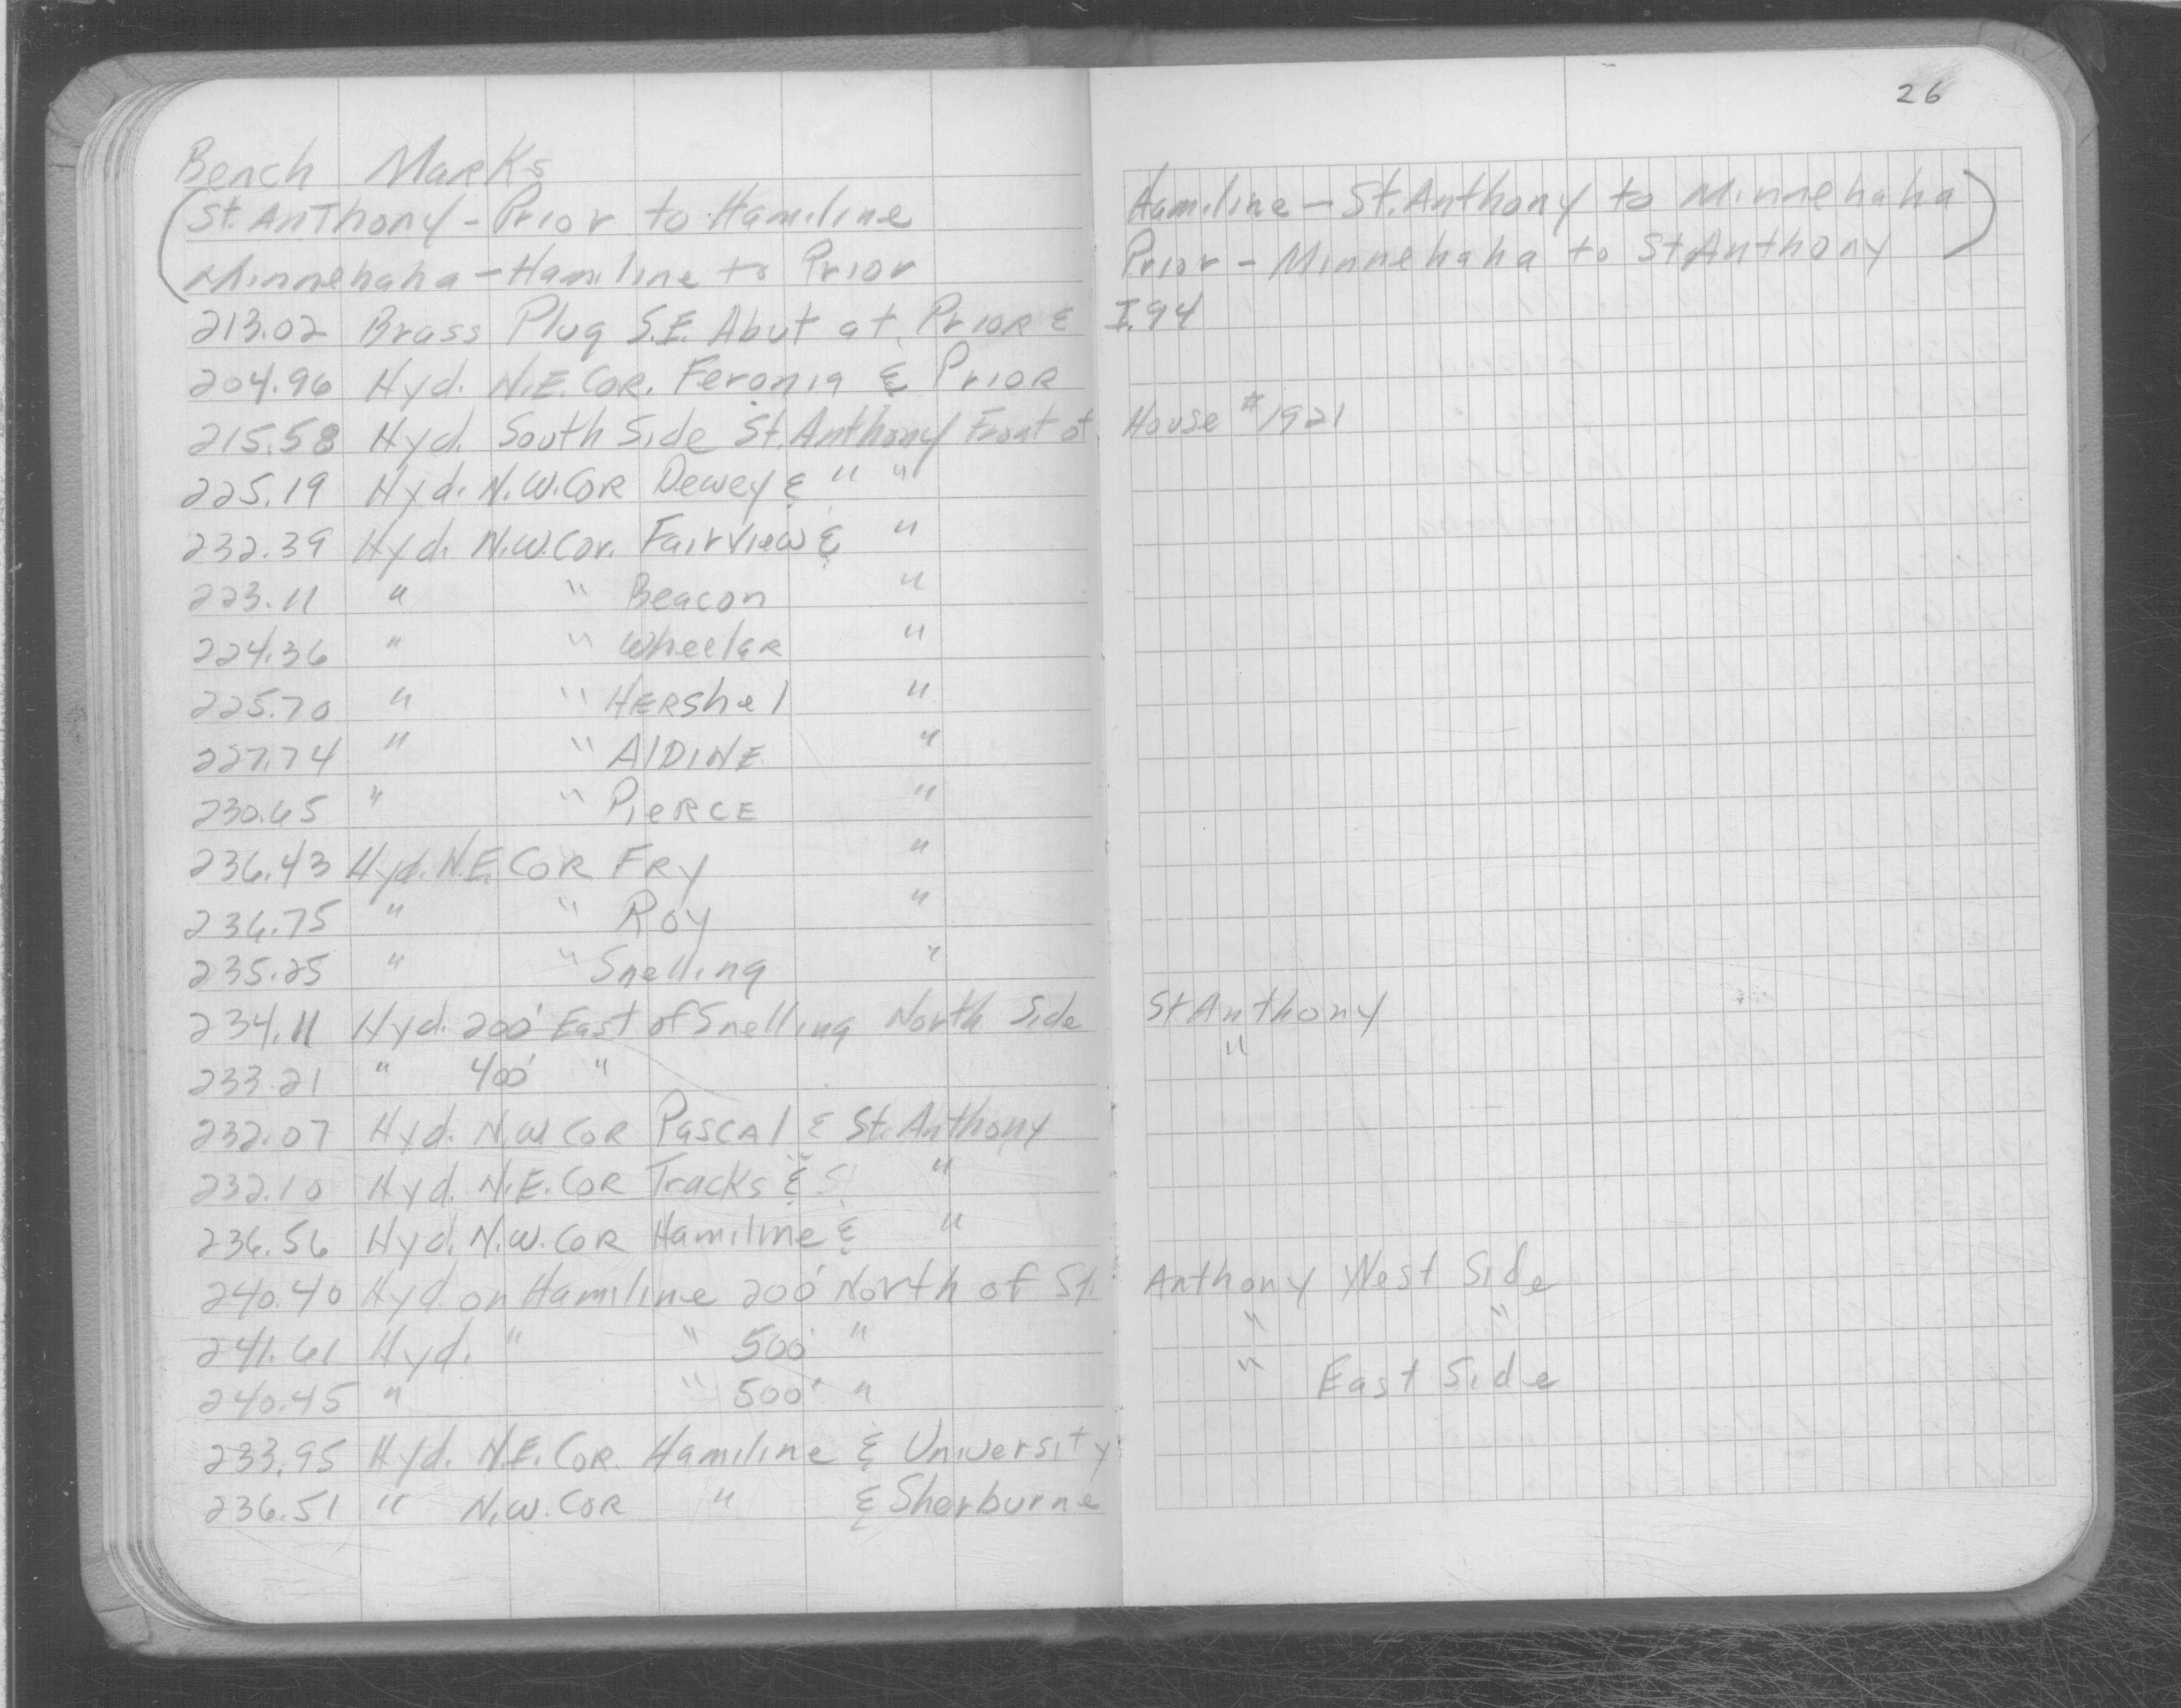 26
Bench Marks
(St. Anthony - Prior to Hamiline Hamiline - St. Anthony to Minnehaha)
Minnehaha - Hamiline to Prior Prior - Minnehaha to St Anthony
213.02 Brass Plug S.E. Abut at Prior & I.94
204.96 Hyd. N.E. Cor. Feronia & Prior
215.58 Hyd. South Side St. Anthony Front of House #1921
225.19 Hyd. N.W. Cor Dewey & " "
232.39 Hyd. N.W. Cor. Fairview & "
223.11 " " Beacon "
224.36 " " Wheelar "
225.70 " " Hershel "
227.74 " " Aldine "
230.65 " " Pierce "
236.43 Hyd. N.E. Cor Fry "
236.75 " " Roy "
235.25 " " Snelling "
234.11 Hyd. 200' East of Snelling North Side St Anthony
233.21 " 400' " "
232.07 Hyd. N.W Cor Pascal & St. Anthony
232.10 Hyd. N.E. Cor Tracks & "
236.56 Hyd. N.W. Cor Hamiline & "
240.40 Hyd. on Hamiline 200' North of St. Anthony West Side
241.61 Hyd. " " 500' " " "
240.45 " " 500' " " East Side
233.95 Hyd. N.E. Cor. Hamiline & University
236.51 " N.W. Cor " & Sherburne